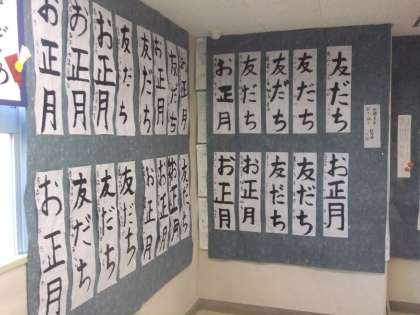 友だち
友だち
友だち
友だち
お正月
お正月
友だち
友だち
お正月
お正月
お正月
友だち
お正月
友だち
お正月
お正月
お正月
友だち
お正月
お正月
お正月
友だち
友だち
友だち
お正月